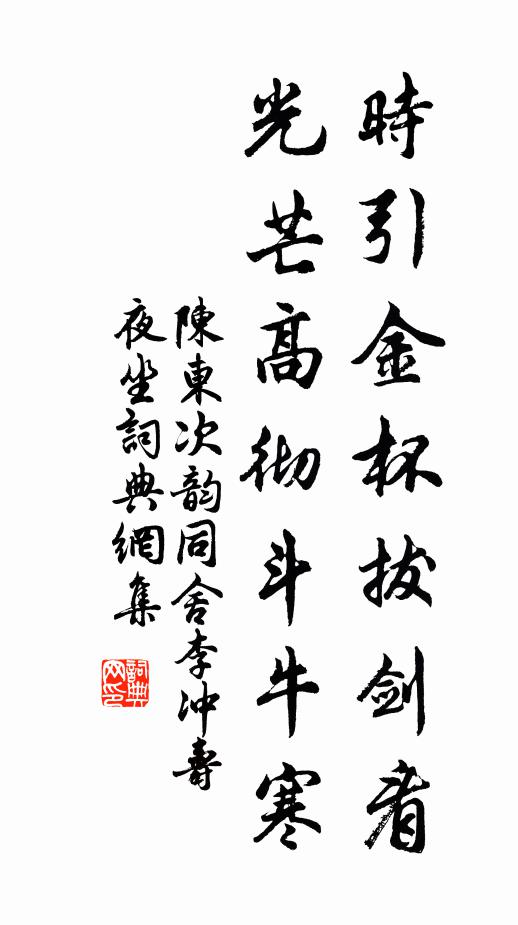 時引金杯拔剑看
光芒高彻斗牛寒
陳東次韵同舍李冲壽
夜坐詞典網集
詞典网印